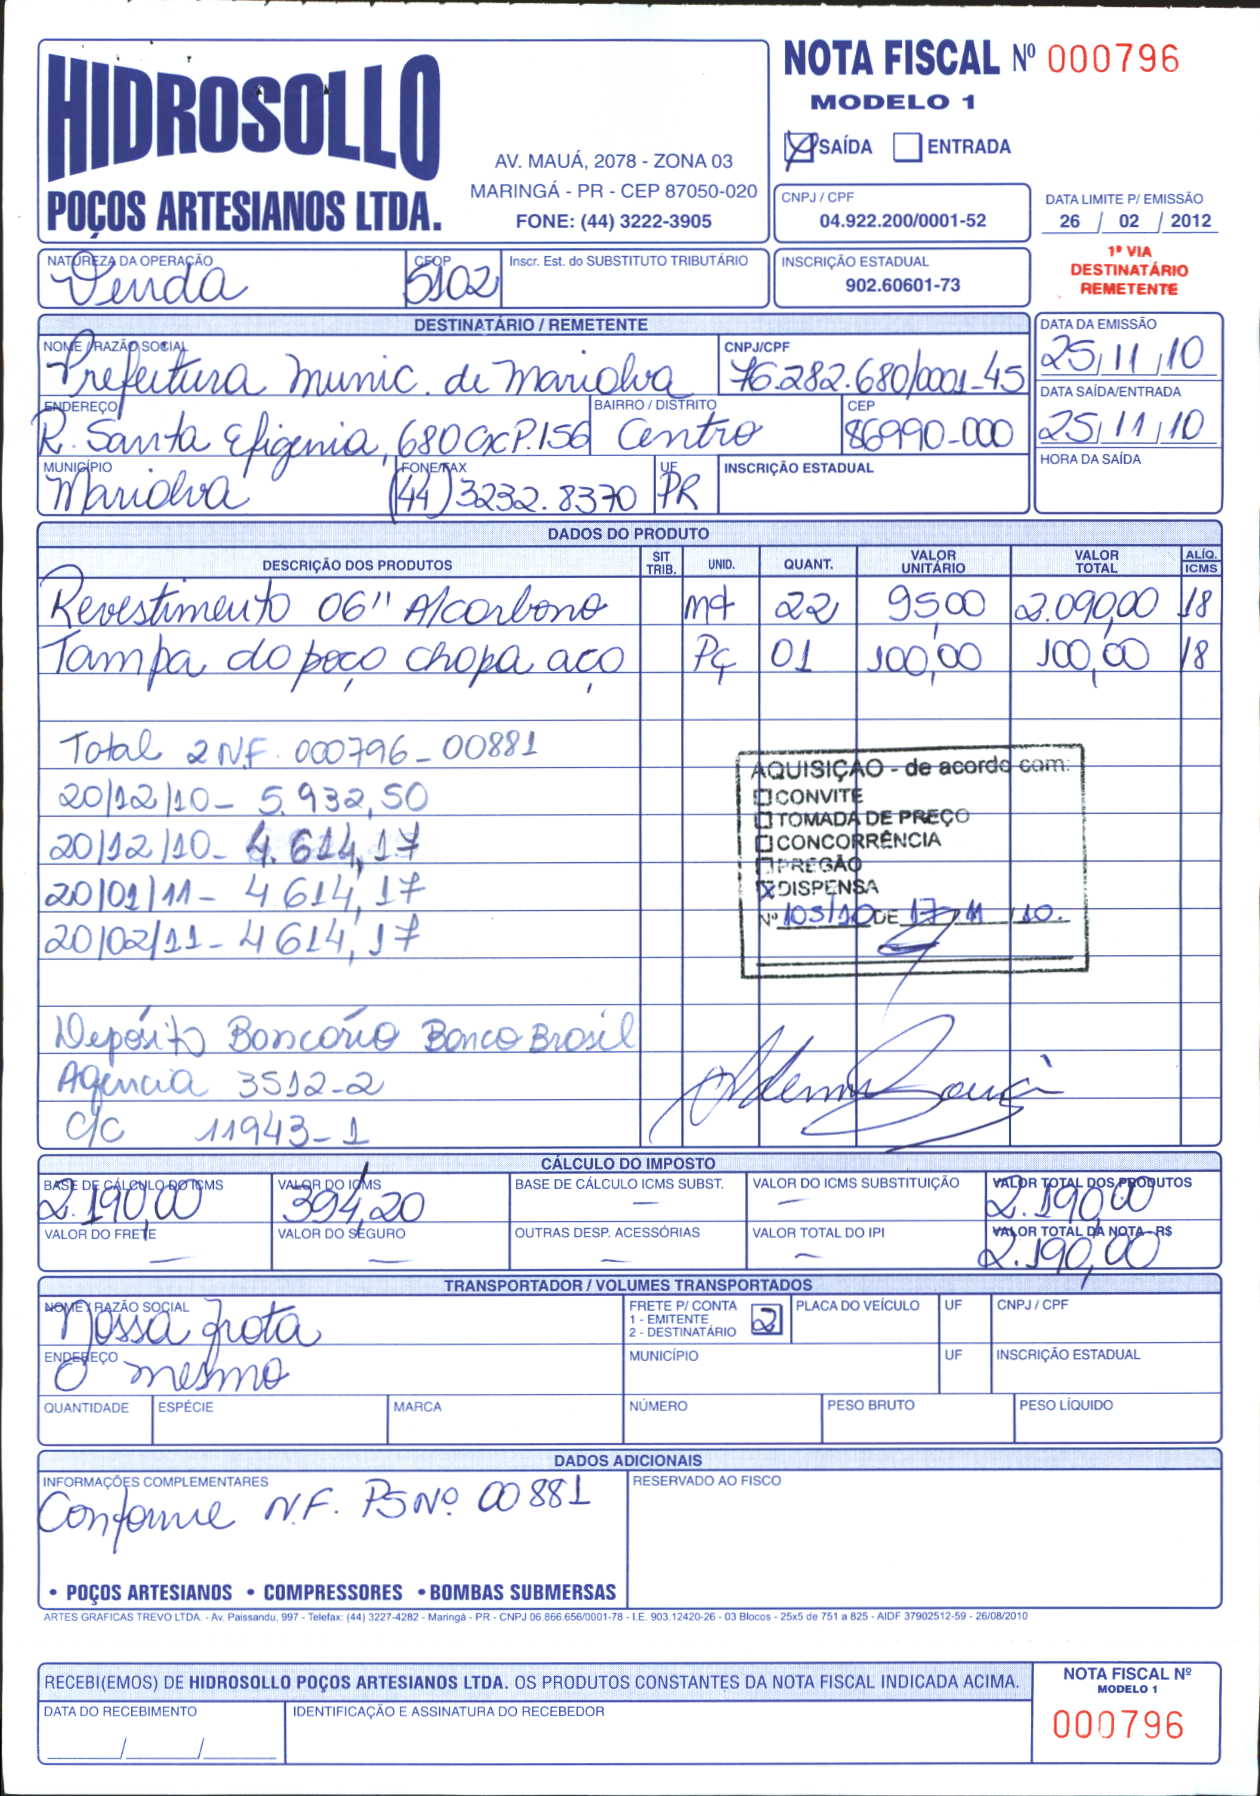 HIDROSOLLO
POÇOS ARTESIANOS LTDA.
AV. MAUÁ, 2078 - ZONA 03
MARINGÁ - PR - CEP 87050-020
FONE: (44) 3222-3905
NOTA FISCAL Nº 000796
MODELO 1
SAÍDA ENTRADA
CNPJ / CPF
04.922.200/0001-52
DATA LIMITE P/ EMISSÃO
26 / 02 / 2012
1ª VIA
DESTINATÁRIO
REMETENTE
NATUREZA DA OPERAÇÃO CFOP Inscr. Est. do SUBSTITUTO TRIBUTÁRIO
Venda 5102
INSCRIÇÃO ESTADUAL
902.60601-73
DESTINATÁRIO / REMETENTE
NOME / RAZÃO SOCIAL CNPJ/CPF DATA DA EMISSÃO
Prefeitura Munic. de Marialva 76.282.680/0001-45 25/11/10
ENDEREÇO BAIRRO / DISTRITO CEP DATA SAÍDA/ENTRADA
R. Santa Efigenia, 680 CXP.156 Centro 86990-000 25/11/10
MUNICÍPIO FONE/FAX UF INSCRIÇÃO ESTADUAL HORA DA SAÍDA
Marialva (44) 3232.8370 PR
DADOS DO PRODUTO
DESCRIÇÃO DOS PRODUTOS SIT TRIB. UNID. QUANT. VALOR UNITÁRIO VALOR TOTAL ALÍQ. ICMS
Revestimento 06" A/carbono mt 22 95,00 2.090,00 18
Tampa do poço chapa aço Pç 01 100,00 100,00 18
Total 2 N.F. 000796-00881
20/12/10- 5.932,50
20/12/10- 4.614,17
20/01/11- 4614,17
20/02/11- 4614,17
AQUISIÇÃO - de acordo com:
CONVITE
TOMADA DE PREÇO
CONCORRÊNCIA
PREGÃO
DISPENSA
Nº 103/10 DE 17/11/10.
Depósito Bancário Banco Brasil
Agência 3512-2
C/C 11943-1
CÁLCULO DO IMPOSTO
BASE DE CÁLCULO DO ICMS VALOR DO ICMS BASE DE CÁLCULO ICMS SUBST. VALOR DO ICMS SUBSTITUIÇÃO VALOR TOTAL DOS PRODUTOS
2.190,00 394,20 — — 2.190,00
VALOR DO FRETE VALOR DO SEGURO OUTRAS DESP. ACESSÓRIAS VALOR TOTAL DO IPI VALOR TOTAL DA NOTA - R$
— — — — 2.190,00
TRANSPORTADOR / VOLUMES TRANSPORTADOS
NOME / RAZÃO SOCIAL FRETE P/ CONTA 1 - EMITENTE 2 - DESTINATÁRIO 2 PLACA DO VEÍCULO UF CNPJ / CPF
Nossa frota
ENDEREÇO MUNICÍPIO UF INSCRIÇÃO ESTADUAL
O mesmo
QUANTIDADE ESPÉCIE MARCA NÚMERO PESO BRUTO PESO LÍQUIDO
DADOS ADICIONAIS
INFORMAÇÕES COMPLEMENTARES RESERVADO AO FISCO
Conforme N.F. PS Nº 00881
• POÇOS ARTESIANOS • COMPRESSORES • BOMBAS SUBMERSAS
ARTES GRAFICAS TREVO LTDA. - Av. Paissandu, 997 - Telefax: (44) 3227-4282 - Maringá - PR - CNPJ 06.866.656/0001-78 - I.E. 903.12420-26 - 03 Blocos - 25x5 de 751 a 825 - AIDF 37902512-59 - 26/08/2010
RECEBI(EMOS) DE HIDROSOLLO POÇOS ARTESIANOS LTDA. OS PRODUTOS CONSTANTES DA NOTA FISCAL INDICADA ACIMA.
NOTA FISCAL Nº
MODELO 1
000796
DATA DO RECEBIMENTO IDENTIFICAÇÃO E ASSINATURA DO RECEBEDOR